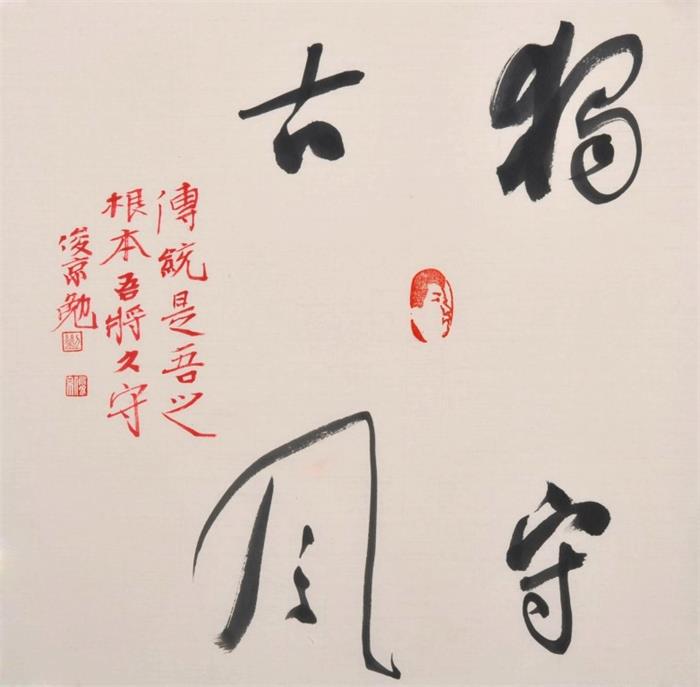 獨守
古风
傳統是吾之
根本吾將久守
俊京勉